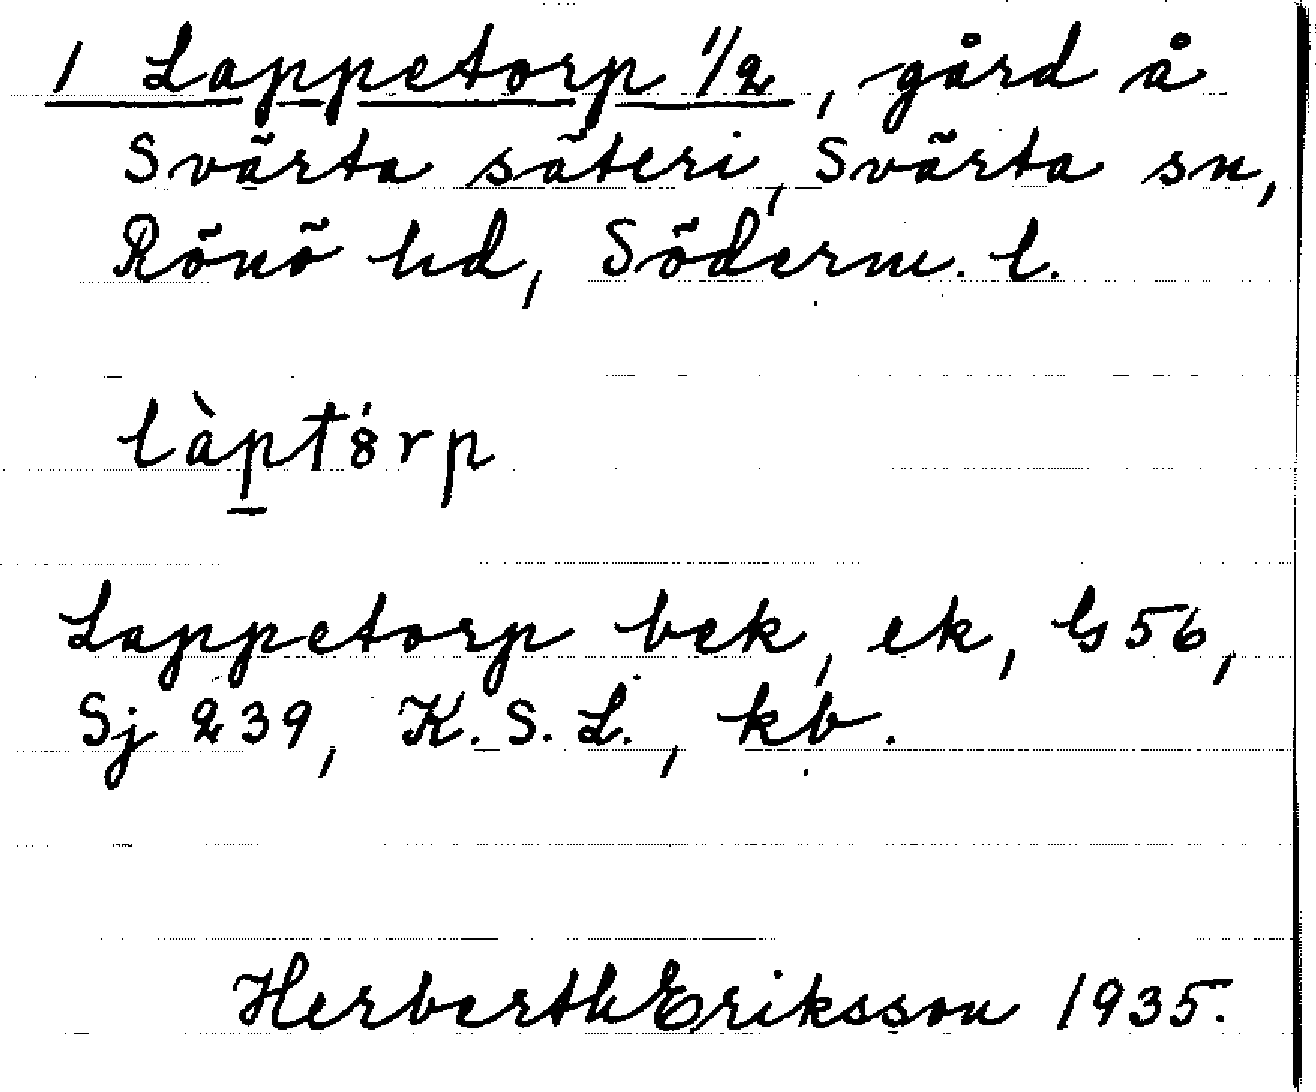 1 Lappetorp 1/2, gård å
Svärta säteri, Svärta sn,
Rönö hd, Söderm. l.
làpt8́rp
Lappetorp bek, ek, G56,
Sj 239, K.S.L., kb.
Herberth Eriksson 1935.